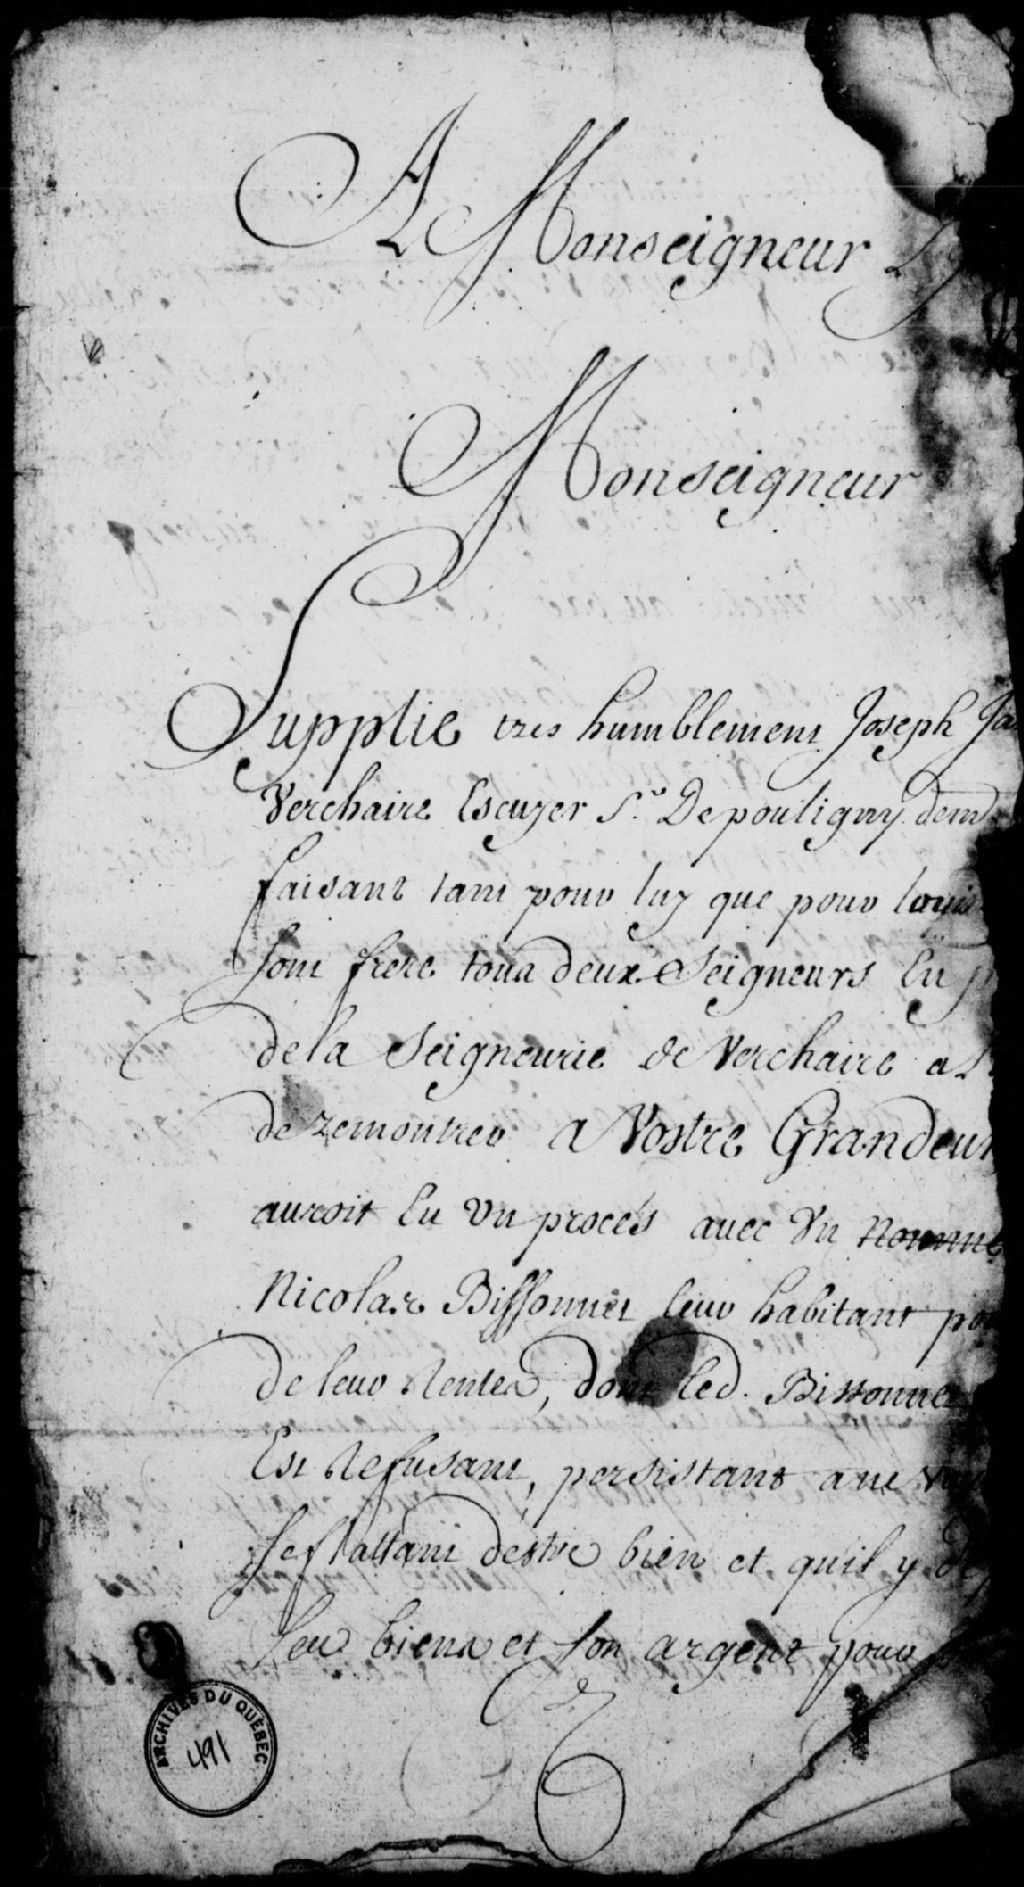 A Monseigneur
Monseigneur
Supplie tres humblement Joseph
Verchaire Escuyer Sr. De pouligny dem
faisant tant pour luy que pour louis
son frere tous deux Seigneurs En
de la Seigneurie de Verchaire
de remontrer a Vostre Grandeur
auroit Eu un procés avec Un Nommé
Nicolas Bissonnet leur habitant
de leur Rentes, dont led. Bissonnet
Est Refusant, persistant a ne
se flattant destre bien et qu'il y
ses biens et son argent pour
ARCHIVES DU QUÉBEC
491